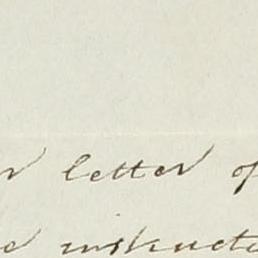 r letter of
e instruct